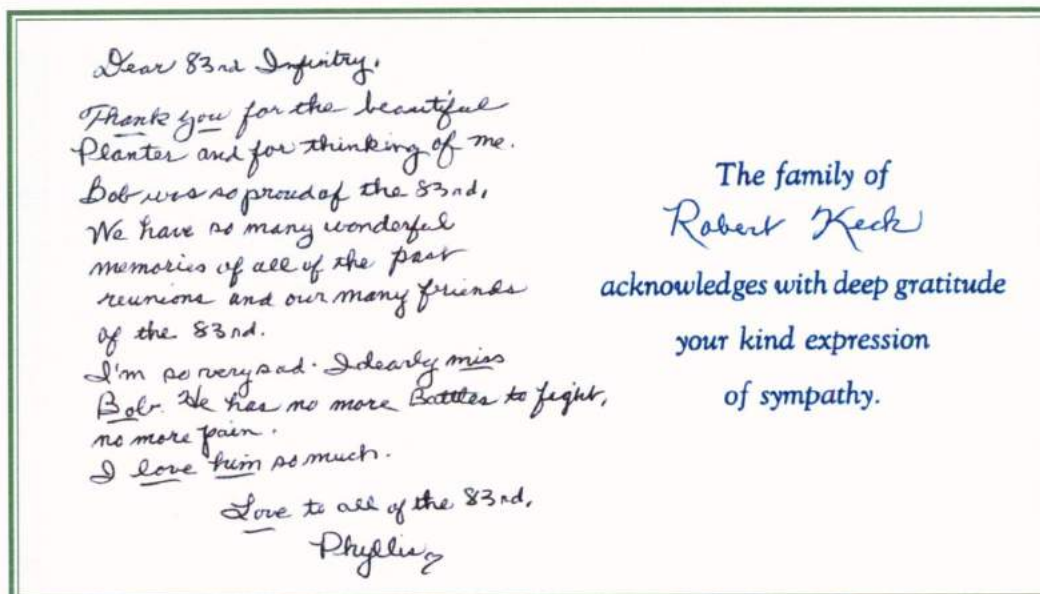 Dear 83rd Infintry,
Thank you for the beautiful
Planter and for thinking of me.
Bob was so proud of the 83rd,
We have so many wonderful
memories of all of the past
reunions and our many friends
of the 83rd.
I'm so very sad. I dearly miss
Bob. He has no more Battles to fight,
no more pain.
I love him so much.
Love to all of the 83rd,
Phyllis
The family of
Robert Keck
acknowledges with deep gratitude
your kind expression
of sympathy.